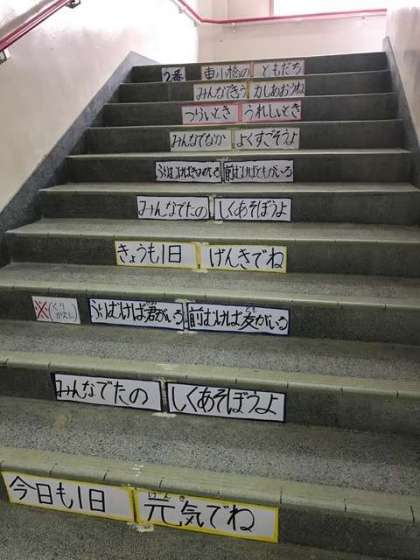 2番 ともだち
みんなできょう 力しあおうね
つらいとき うれしいとき
みんなでなか よくすごそうよ
ふりむけばきみがいる 前むけばともがいる
みんなでたの しくあそぼうよ
きょうも1日 げんきでね
※(くりかえし) ふりむけば君がいる 前むけば友がいる
みんなでたの しくあそぼうよ
今日も1日 元気でね